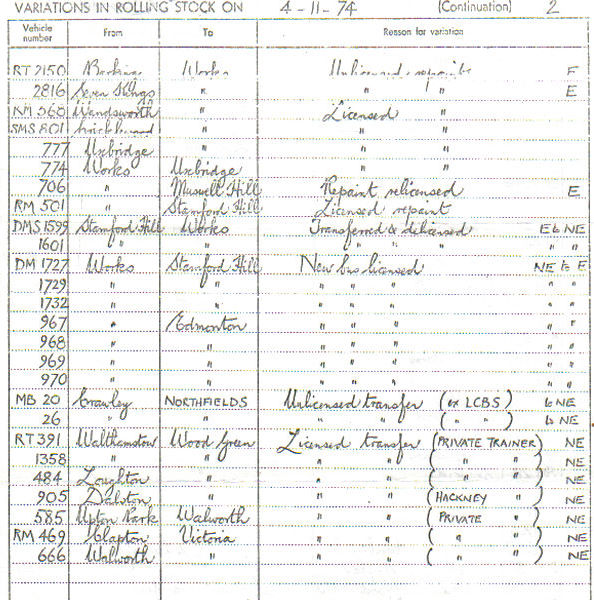 VARIATIONS IN ROLLING STOCK ON 4-11-74 (Continuation) 2
Vehicle number From To Reason for variation
RT 2150 Barking Works Unlicensed repaint E
2816 Seven Kings " " " E
RM 568 Wandsworth " Licensed "
SMS 801 " " "
777 Uxbridge " " "
774 Works Uxbridge " "
706 " Muswell Hill Repaint relicensed E
RM 501 " Stamford Hill Licensed repaint
DMS 1599 Stamford Hill Works Transferred & delicensed E to NE
1601 " " " " " " "
DM 1727 Works Stamford Hill New bus licensed NE to E
1729 " " " " " " "
1732 " " " " " " "
967 " Edmonton " " " " "
968 " " " " " " "
969 " " " " " " "
970 " " " " " " "
MB 20 Crawley NORTHFIELDS Unlicensed transfer (ex LCBS) to NE
26 " " " " ( " " ) to NE
RT 391 Walthamstow Wood Green Licensed transfer (PRIVATE TRAINER) NE
1358 " " " " ( " " ) NE
484 Loughton " " " ( " " ) NE
905 Dalston " " " (HACKNEY " ) NE
585 Upton Park Walworth " " (PRIVATE " ) NE
RM 469 Clapton Victoria " " ( " " ) NE
666 Walworth " " " ( " " ) NE